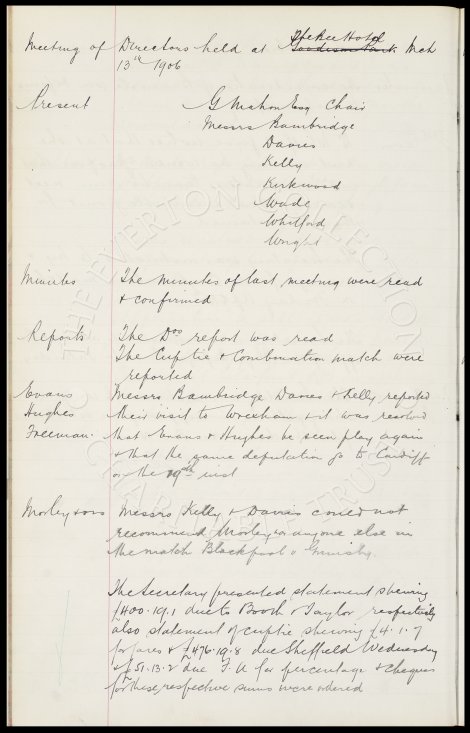 The Bee Hotel
Meeting of Directors held at Goodison Park Mch
13th 1906
Present G Mahon Esq Chair
Messrs Bainbridge
Davies
Kelly
Kirkwood
Wade
Whitford
Wright
Minutes The minutes of last meeting were read
& confirmed
Reports The Drs report was read
The Cuptie & Combination match were
reported
Evans Messrs Bainbridge Davies & Kelly reported
Hughes their visit to Wrexham & it was resolved
Freeman. that Evans & Hughes be seen play again
& that the same deputation go to Cardiff
on the 19th inst
Morley & ors Messrs Kelly & Davies could not
recommend Morley or anyone else in
the match Blackpool v Grimsby.
The Secretary presented statement shewing
£400.19.1 due to Booth & Taylor respectively
also statement of cuptie shewing £4.1.7
for ares & £476.19.8 due Sheffield Wednesday
& £51.13.2 due F.A for percentage & cheques
for these respective sums were ordered
THE EVERTON COLLECTION
CHARITABLE TRUST